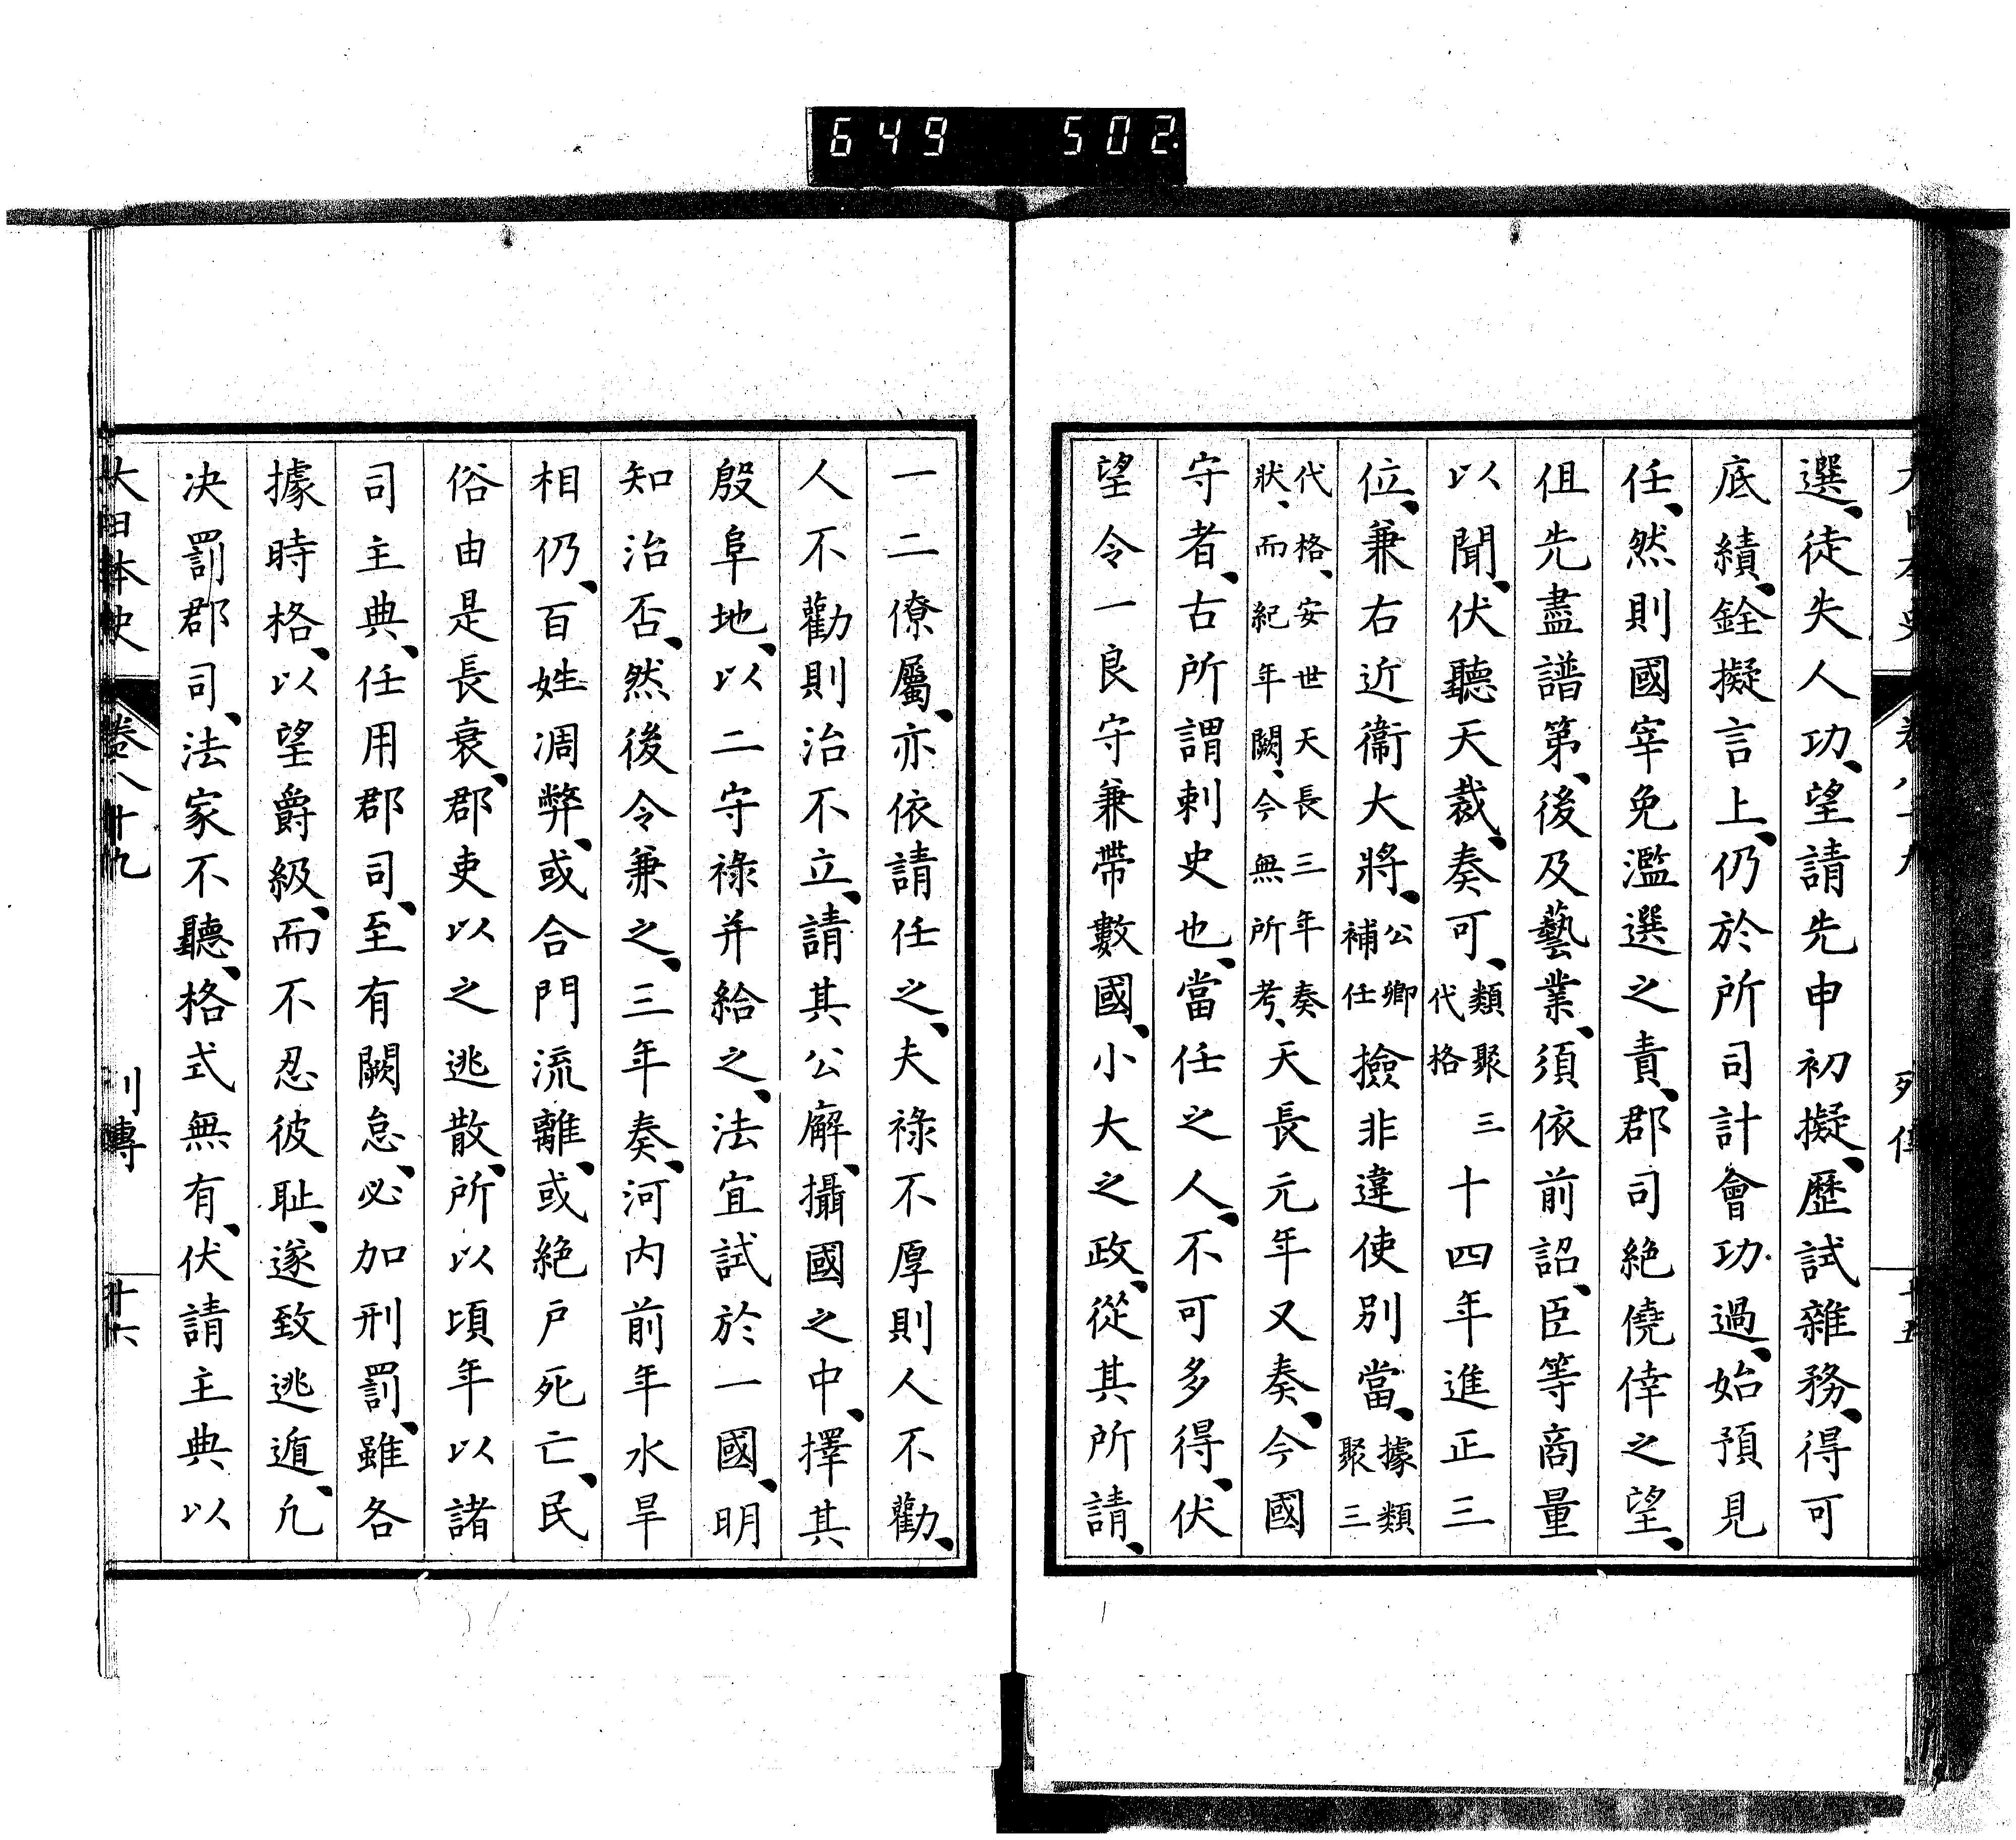 649 502.
選、徒失人功、望請先申初擬、歷試雜務、得可
底績、銓擬言上、仍於所司計會功過、始預見
任、然則國宰免濫選之責、郡司絕僥倖之望、
伹先盡譜第、後及藝業、須依前詔、臣等商量
以聞、伏聽天裁、奏可、類聚三代格十四年進正三
位、兼右近衞大將、公卿補任撿非違使別當、據類聚三
代格、安世天長三年奏狀、而紀年闕、今無所考、天長元年又奏、今國
守者、古所謂刺史也、當任之人、不可多得、伏
望令一良守兼帶數國、小大之政、從其所請、
一二僚屬、亦依請任之、夫祿不厚則人不勸、
人不勸則治不立、請其公廨、攝國之中、擇其
殷阜地、以二守祿并給之、法宜試於一國、明
知治否、然後令兼之、三年奏、河内前年水旱
相仍、百姓凋弊、或合門流離、或絕戶死亡、民
俗由是長衰、郡吏以之逃散、所以頃年以諸
司主典、任用郡司、至有闕怠、必加刑罰、雖各
據時格、以望爵級、而不忍彼耻、遂致逃遁、凢
决罰郡司、法家不聽、格式無有、伏請主典以
大日本史 卷八十九 列傳 十六